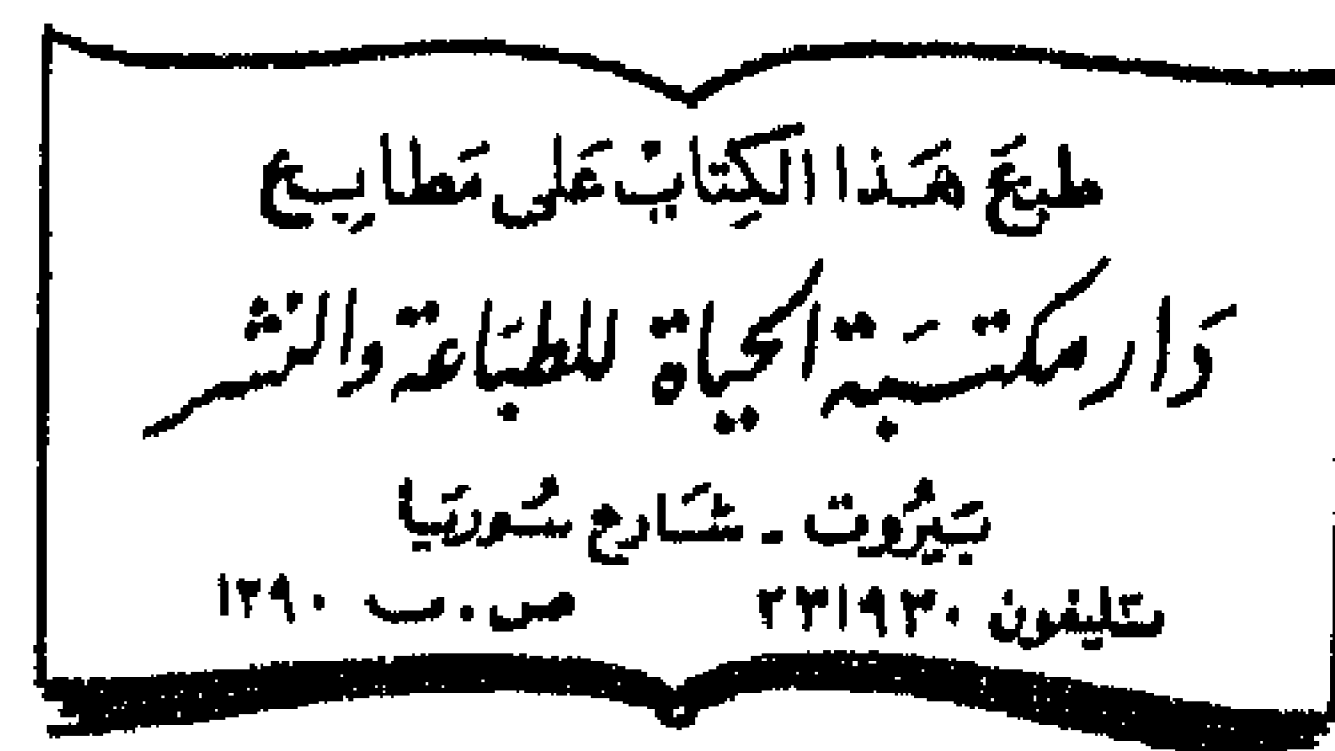 طبعَ هَذا الكِتابْ عَلى مَطابِع
دَار مكتبَة الحياة للطبَاعة والنشر
بَيرُوت - شَارع سُوريَا
تليفون ٢٣١٩٣٠ ص.ب ١٣٩٠